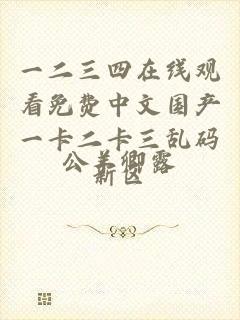 一二三四在线观
看免费中文国产
一卡二卡三乱码
新区
公羊卿露